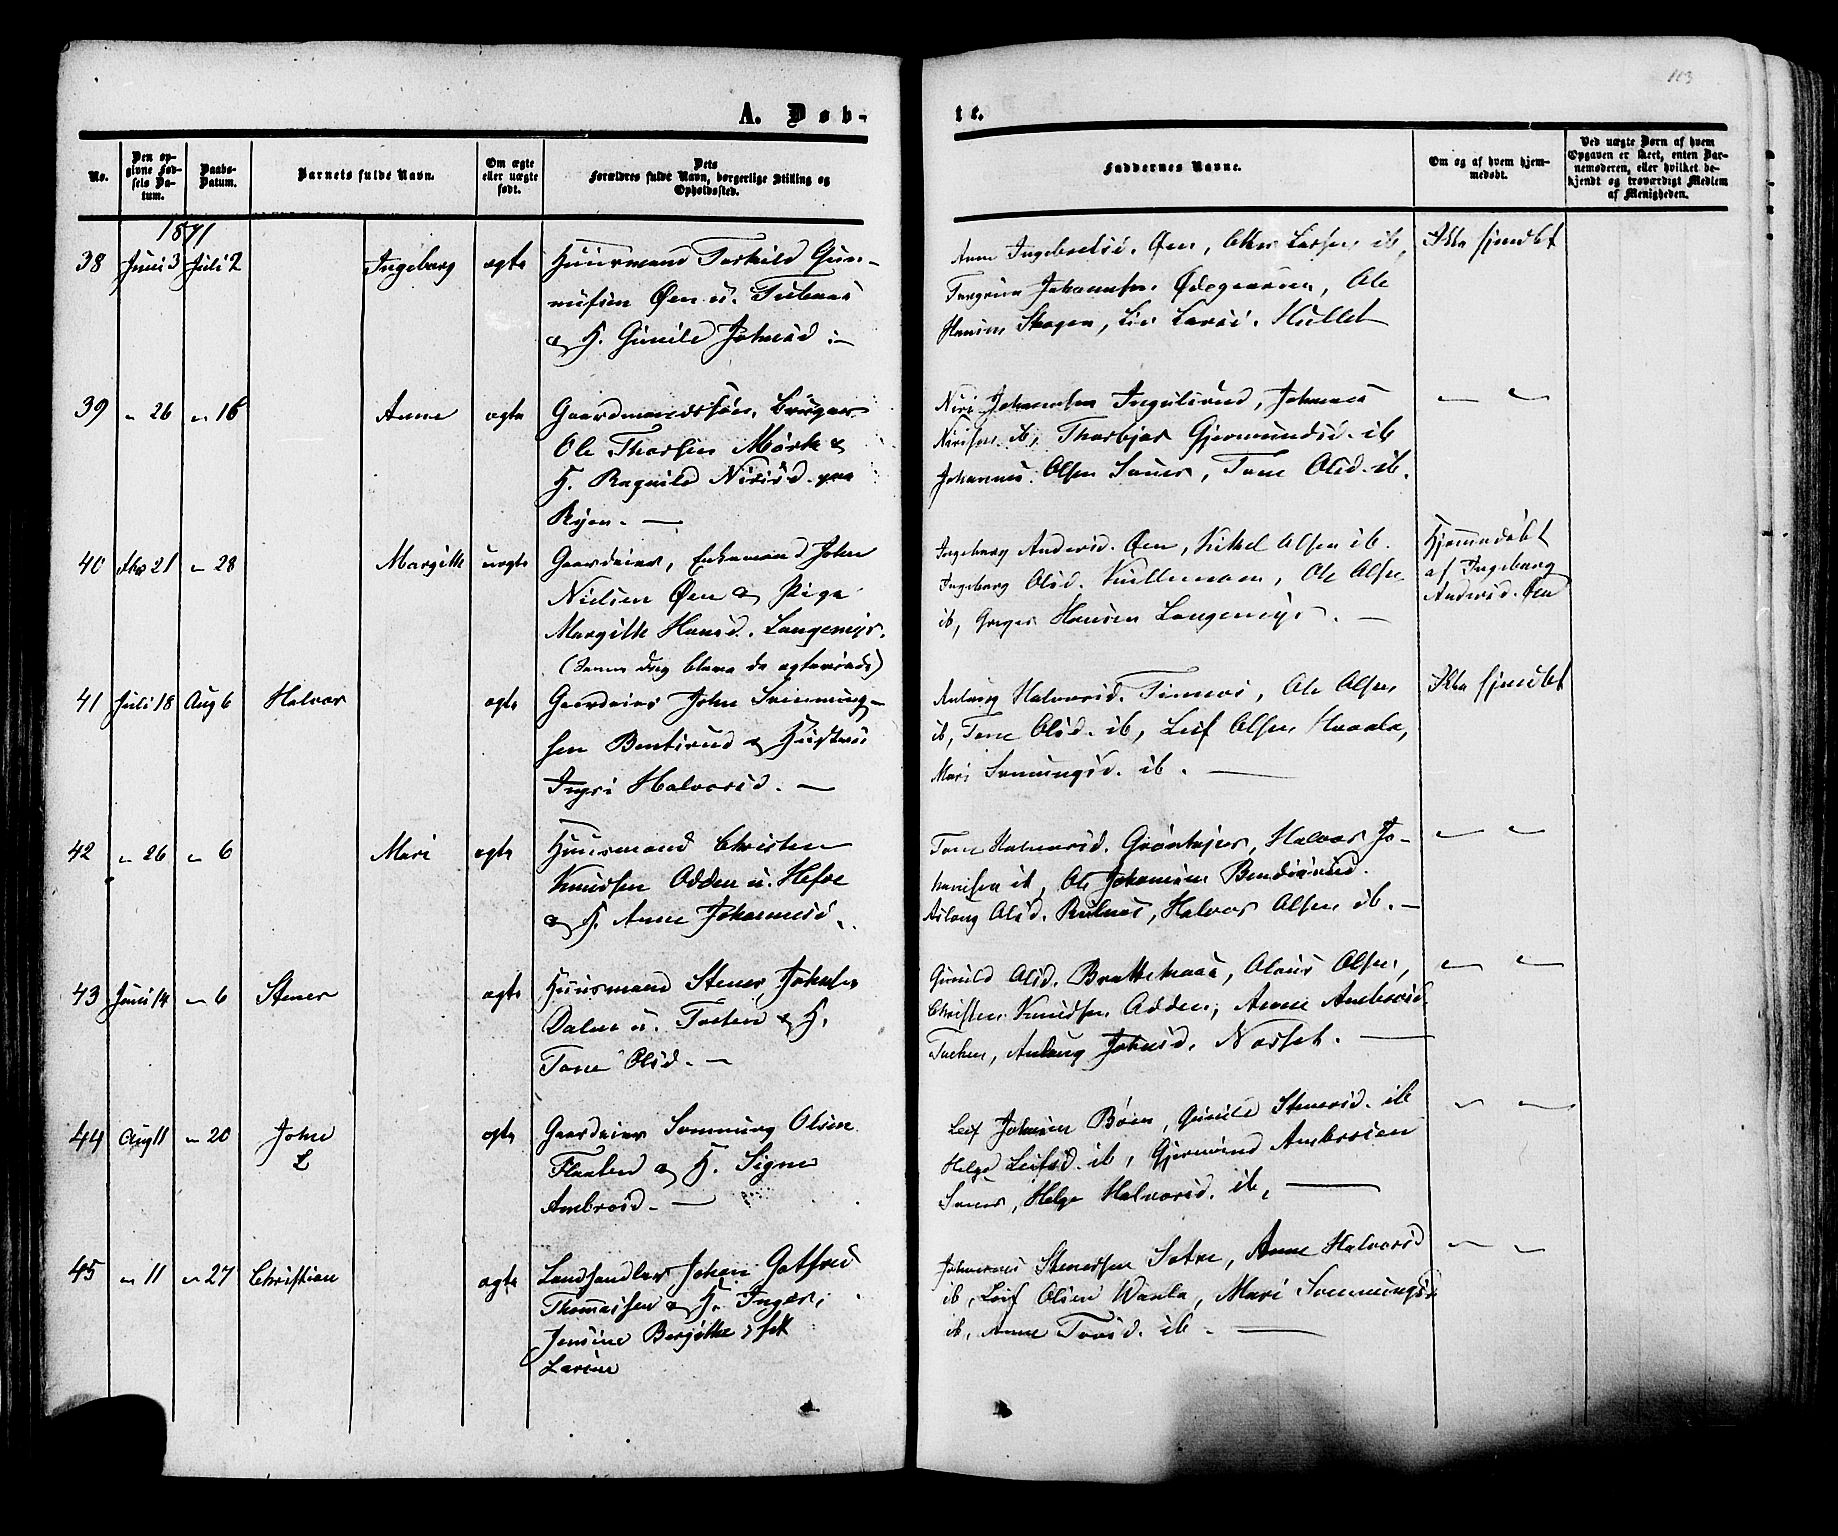 103
A. Døb-
te.
No.
Den op-
givne Fød-
sels Da-
tum.
Daabs-
Datum.
Barnets fulde Navn.
Om ægte
eller uægte
født.
Dets
Forældres fulde Navn, borgerlige Stilling og
Opholdssted.
Faddernes Navne.
Om og af hvem hjem-
medøbt.
Ved uægte Børn af hvem
Opgaven er skeet, enten Bar-
nemoderen, eller hvilket be-
kjendt og troværdigt Medlem
af Menigheden.
1871
38 Juni 3 Juli 2 Ingeborg ægte Huusmand Torkild Gun-
nufsen Øen u.
& H. Gunild Johnsd :-
Anne Øen, Larsen ib,
Johannesen Ødegaarden, Ole
Hansen Skogen, Liv Larsd. Hullet
Ikke hjmdbt
39 " 26 " 16 Anne ægte Gaardmandssøn, Bruger
Ole Thorsen Mørk &
H. Ragnild Nirisd. paa
Ryen. —
Niri Johannesen Ingulsrud, Johannes
Nirisen ib, Thorbjør Gjermundsd. ib
Johannes Olsen Sauer, Tone Olsd. ib.
" "
40 21 " 28 Margitte uægte Gaardeier, Enkemand John
Nielsen Øen & Pige
Margitte Hansd. Langemyr.
(Samme Dag bleve de ægteviede)
Ingeborg Andersd. Øen, Kittel Olsen ib.
Ingeborg Olsd. Ole Olsen
ib, Greger Hansen Langemyr. —
Hjemmedøbt
af Ingeborg
Andersd. Øen
41 Juli 18 Aug 6 Halvor ægte Gaardeier John Svennung-
sen Bentsrud & Hustru
Ingri Halvorsd. —
Aslaug Halvorsd. Tinnes, Ole Olsen
ib, Tone Olsd. ib, Leif Olsen Haaala,
Mari Svennungsd. ib. —
Ikke hjmdbt
42 " 26 " 6 Mari ægte Huusmand Christen
Knudsen Odden u. Hefre
& H. Anne Johannesd.
Tone Halvorsd. Grønhøjer, Halvor Jo-
hannesen ib, Ole Johannesen Bendixrud.
Aslaug Olsd. Rulnes, Halvor Olsen ib. —
" "
43 Juni 14 " 6 Stener ægte Huusmand Stener Johnsen
Dalen u. & H.
Tone Olsd. —
Gunild Olsd. Olaus Olsen,
Christen Knudsen Odden, Anne Ambrosd.
Aslaug Johnsd. Norset. —
" "
44 Aug 11 " 20 John
L
ægte Gaardeier Sonnung Olsen
Flaaten & H. Signe
Ambrosd. —
Leif Johnsen Bøen, Gunild Stenersd. ib
Helge Leifsd. ib, Gjermund Ambrosen
Sauer, Helge Halvorsd. ib, —
" "
45 " 11 " 27 Christian ægte Landhandler Johan Gotfred
Thomassen & H. Inger
Jensine Bergitte, født
Larsen
Johannes Stenersen Sotre, Anne Halvorsd
ib, Leif Olsen Waala, Mari Sonnungsd.
ib, Anne Torsd. ib. —
" "